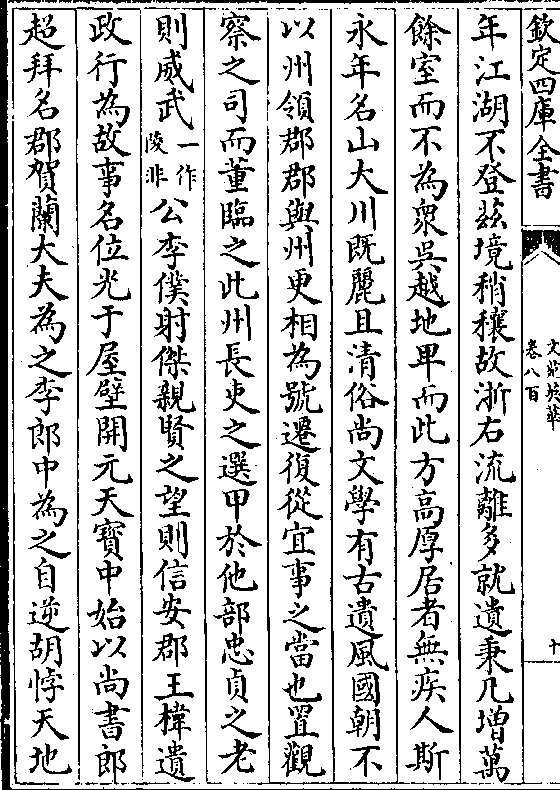 欽定四庫全書
文苑英華
卷八百
十
年江湖不登兹境稍穰故浙右流離多就遺秉凡增萬
餘室而不為衆吳越地卑而此方高厚居者無疾人斯
永年名山大川既麗且清俗尚文學有古遺風國朝不
以州領郡郡與州更相為號遷復從宜事之當也置觀
察之司而董臨之此州長吏之選甲於他部忠貞之老
則威武一作陵非公李僕射傑親賢之望則信安郡王禕遺
政行為故事名位光于屋壁開元天寶中始以尚書郎
超拜名郡賀蘭大夫為之李郎中為之自逆胡悖天地